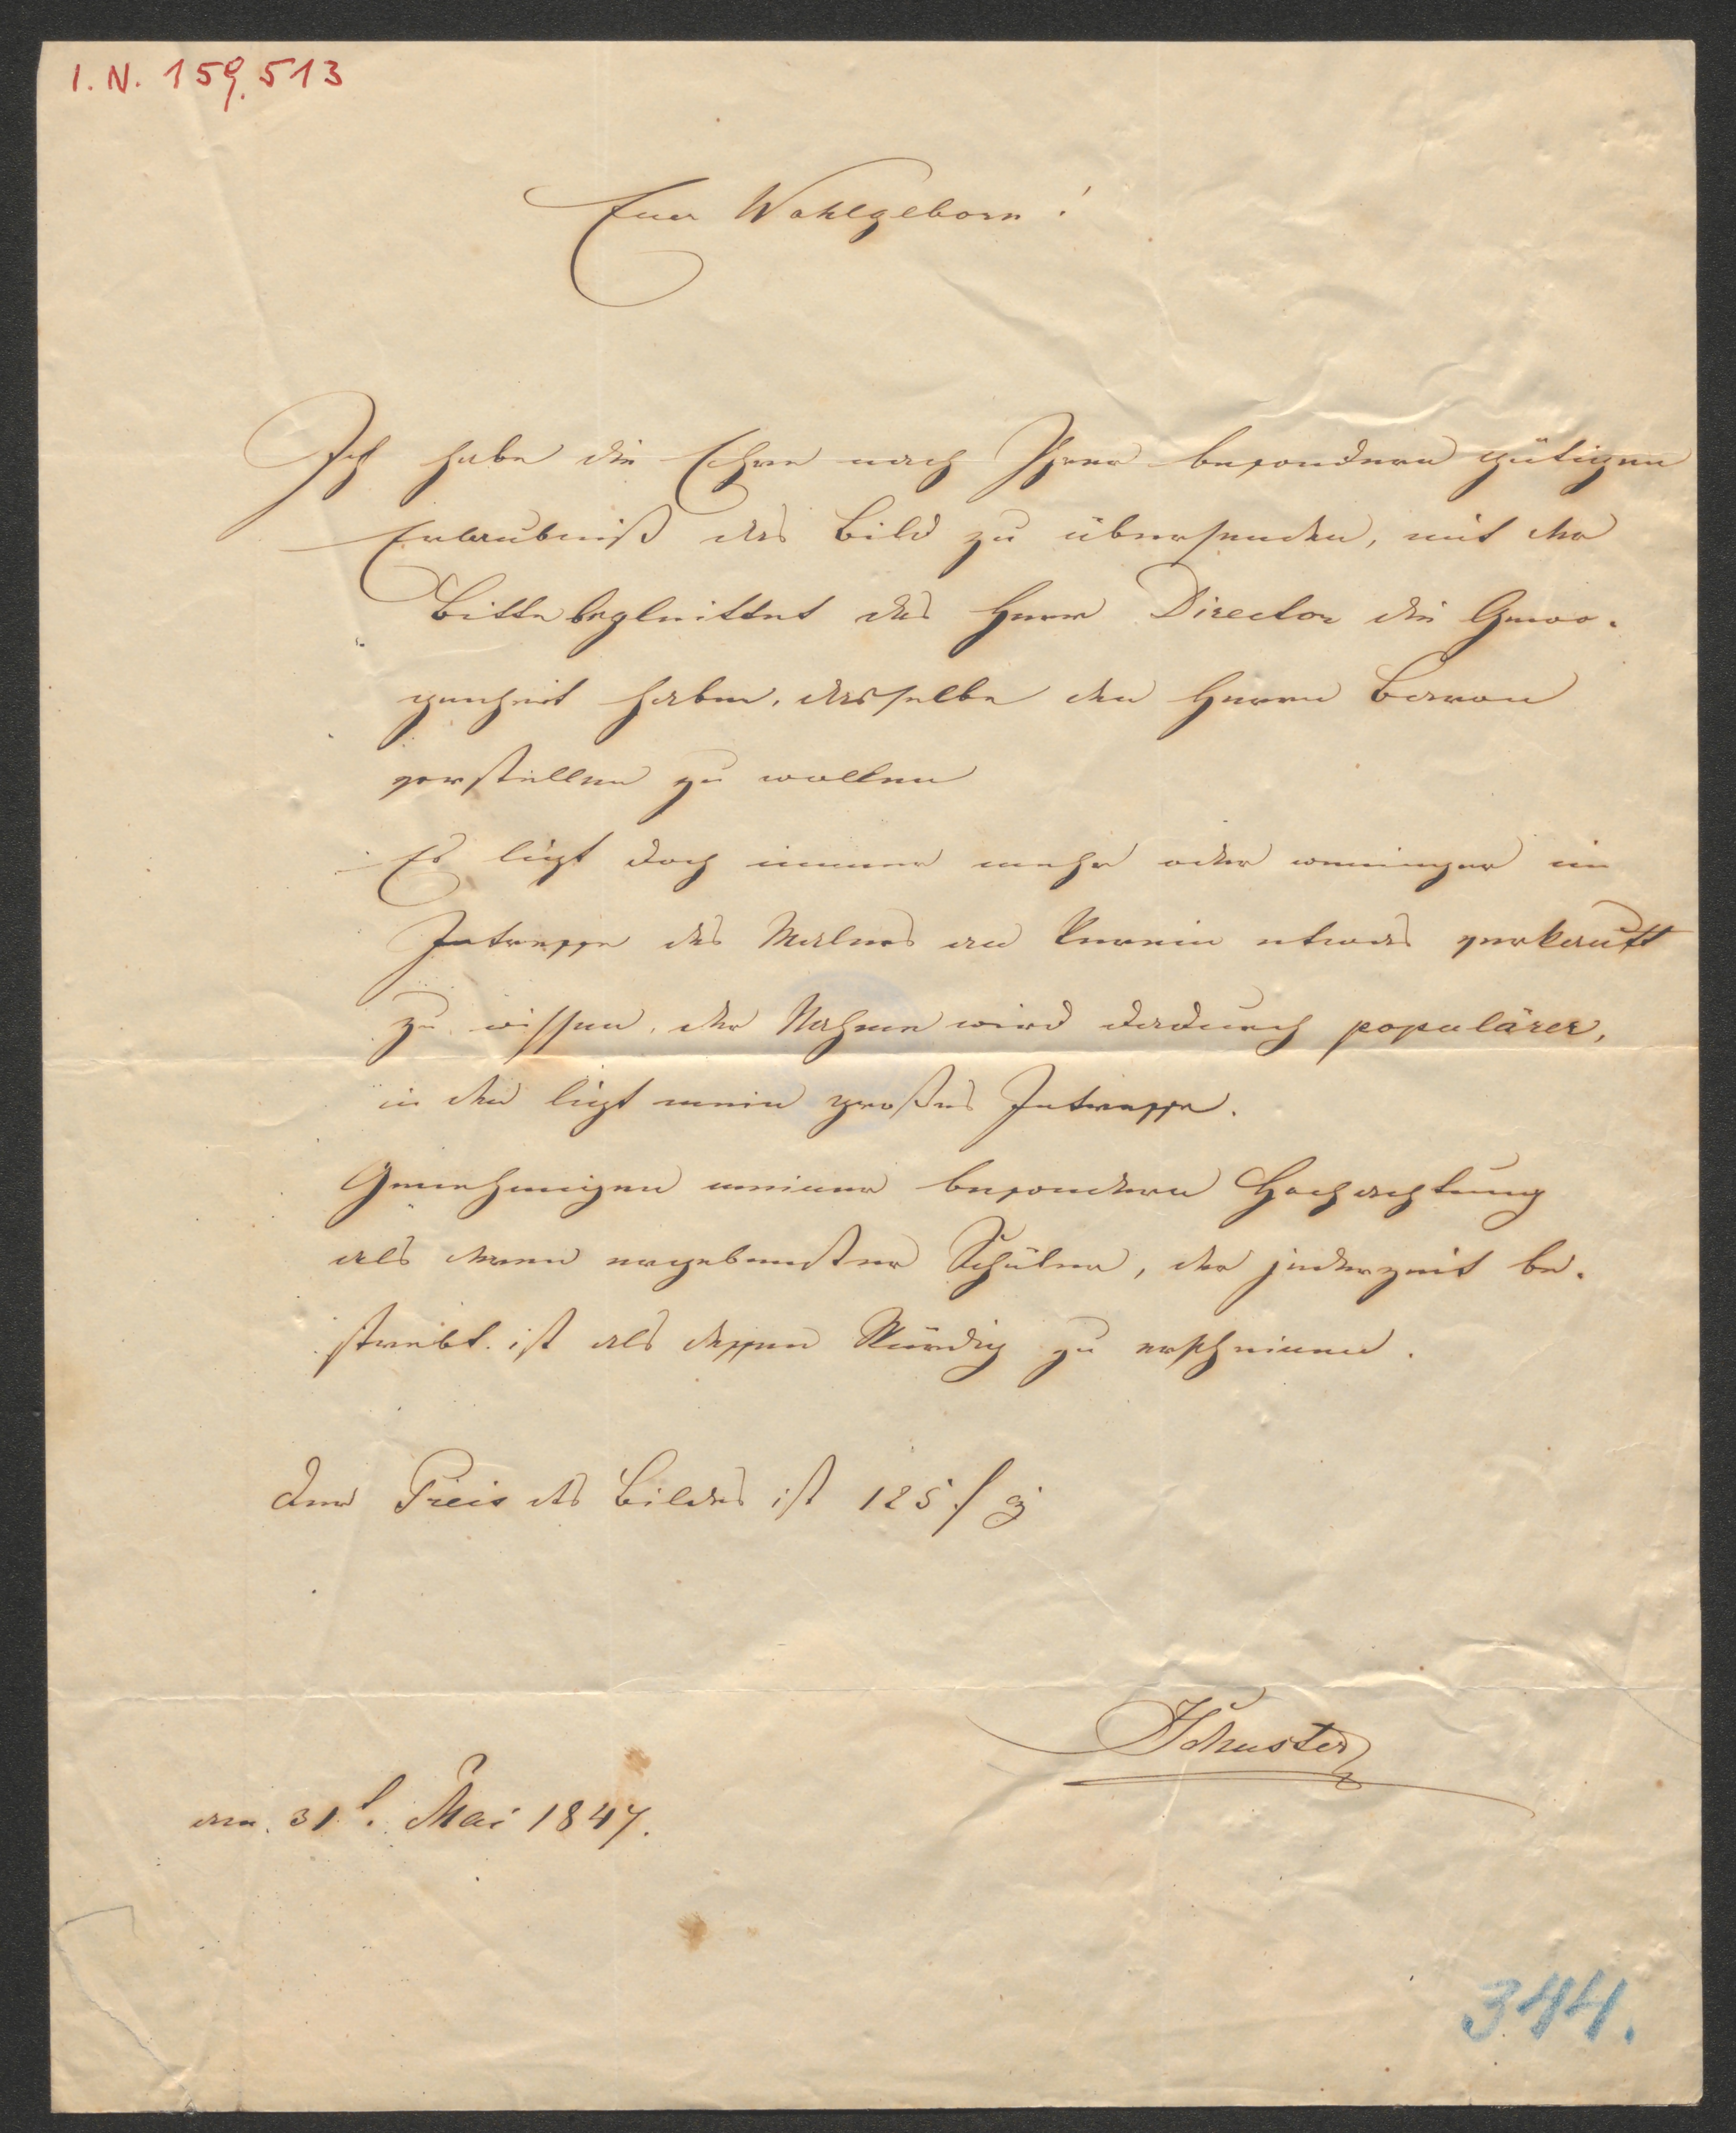 I.N. 159.513
Euer Wohlgeborn!
Ich habe die Ehre nach Ihrer besondern gütigen
Erlaubniß das Bild zu übersenden, mit der
Bitte begleittet das Herr Director die Gewo-
genheit haben, dasselbe den Herrn Baron
vorstellen zu wollen
Es ligt doch immer mehr oder weniniger im
Interesse des Malers an Verein etwas verkauft
zu wissen, der Nahme wird dadurch populärer,
in den ligt mein großes Interesse.
Genehmigen meiner besondern Hochachtung
als deren ergebenster Schüler, der jederzeit be-
strebt ist als dessen Würdig zu erscheinen.
Der Preis des Bildes ist 125 f
Schuster
am 31t. Mai 1847.
344.